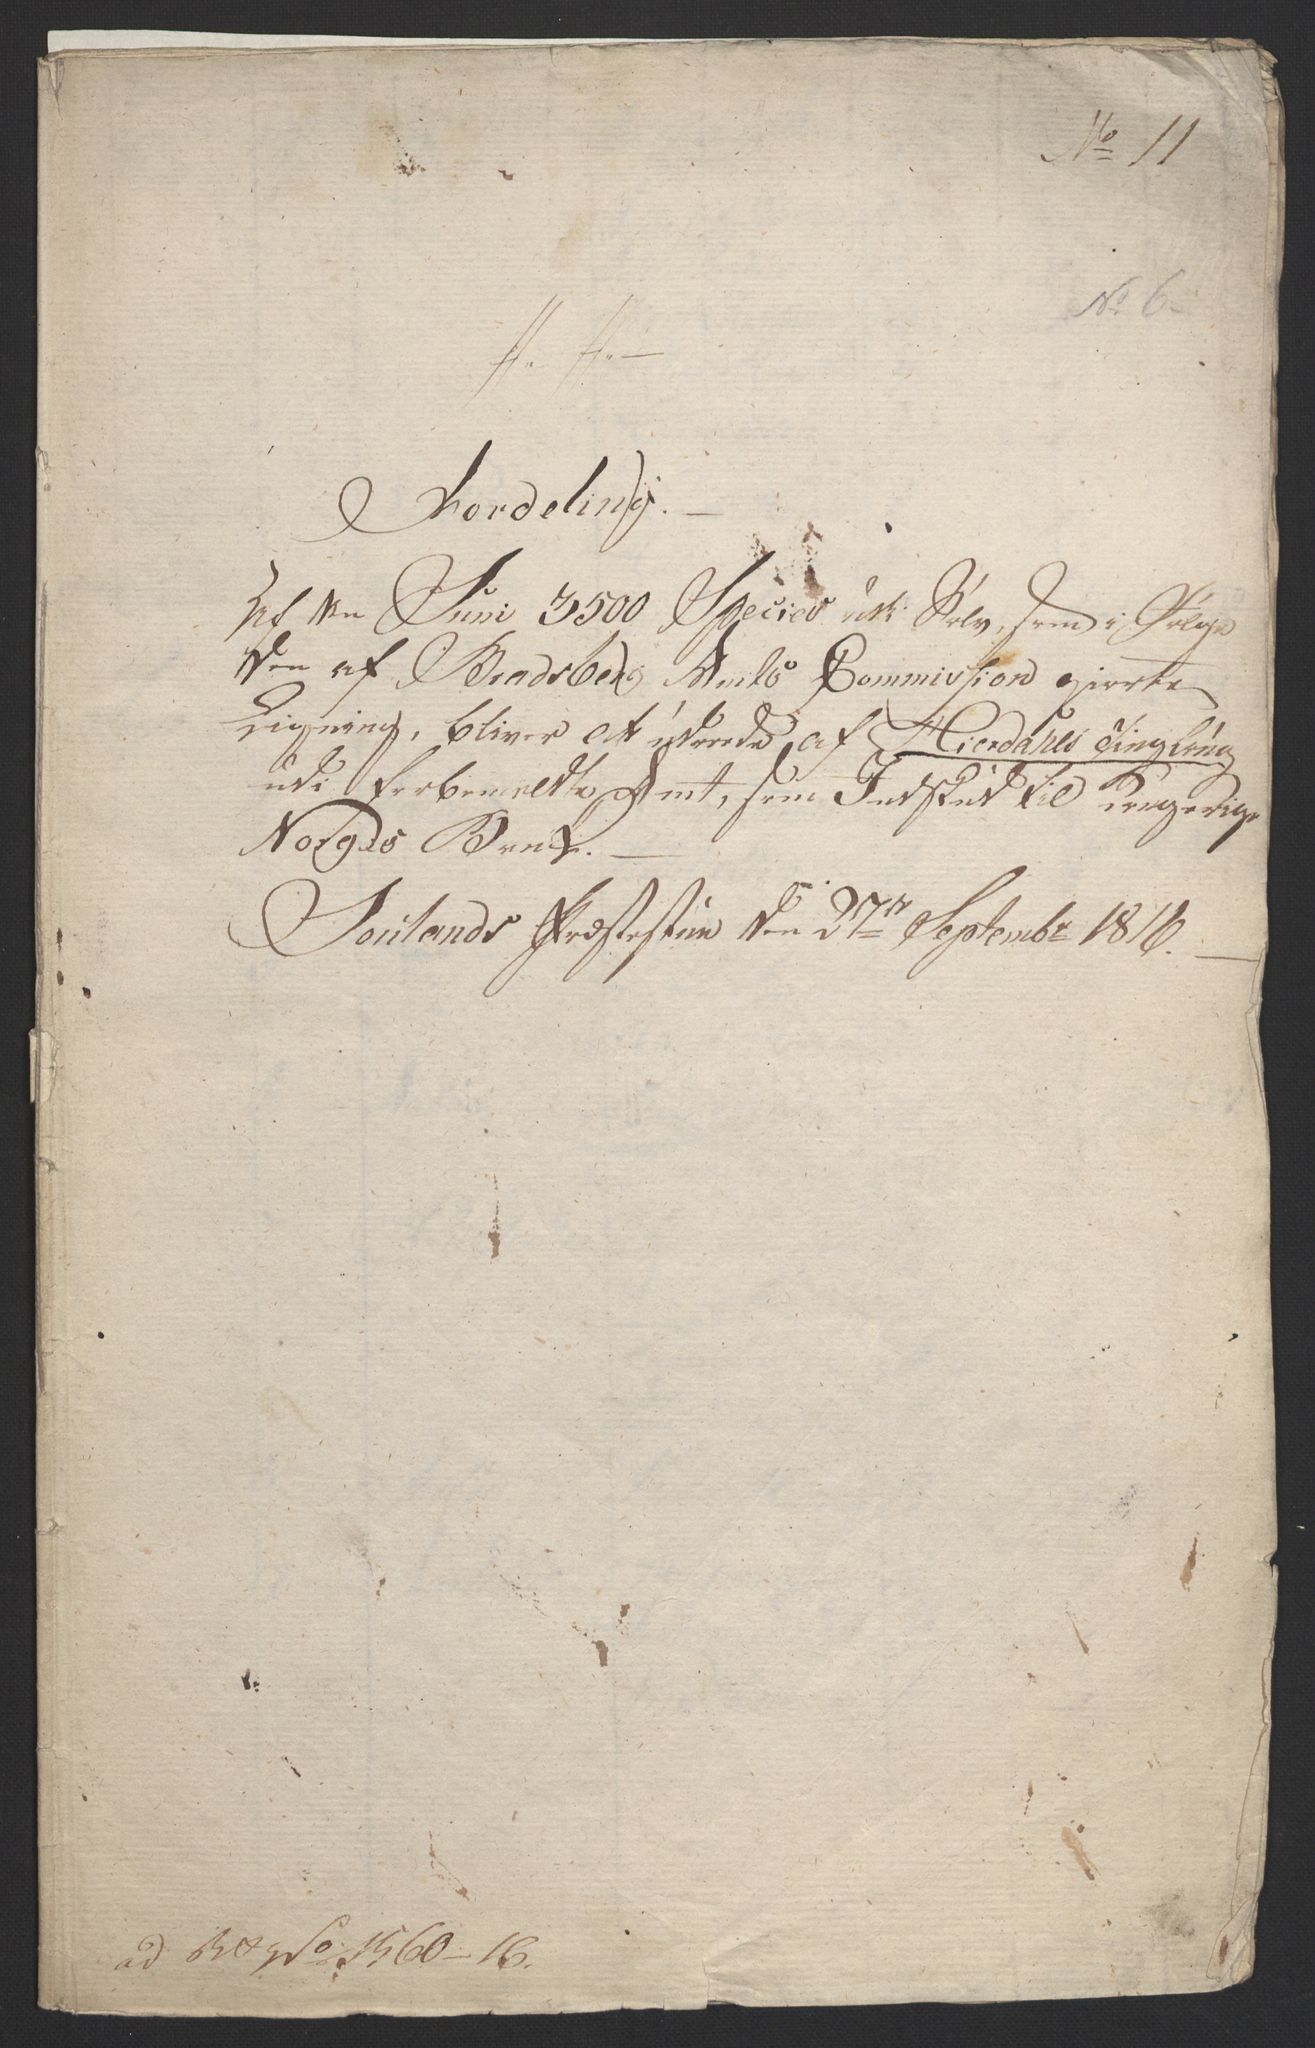 No 11
No 6
Fordeling.
Af den Sum 3500 Species udi Sølv, som i Følge
den af Bradsberg Amts Commission giorte
Ligning, bliver at udrede af Hierdahls Tinglaug
udi forbemeldte Amt, som Indskud til Kongeriget
Norges Bank.
Soulands Præstestue den 27de Septembr 1816.
ad No 1560-16.